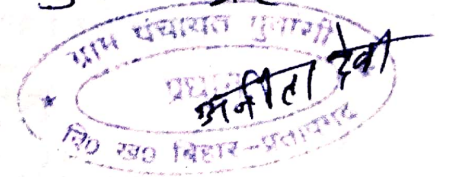 ग्राम पंचायत पुवासी
प्रधान
अनीता देवी
वि० ख० बिहार-प्रतापगढ़